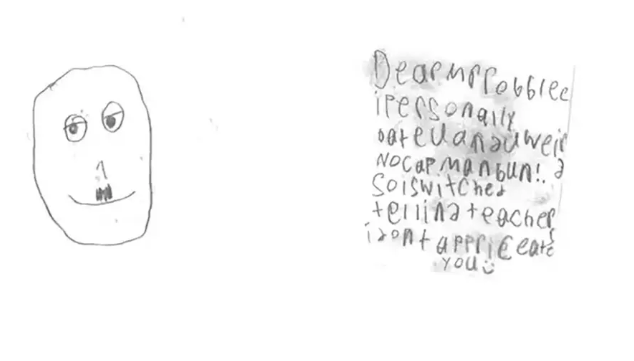 Dear mr Robblee
i Personally
hate U and U weir
NO Cap. man bun!
So i switched
telling teacher
i dont appriceate
YOU